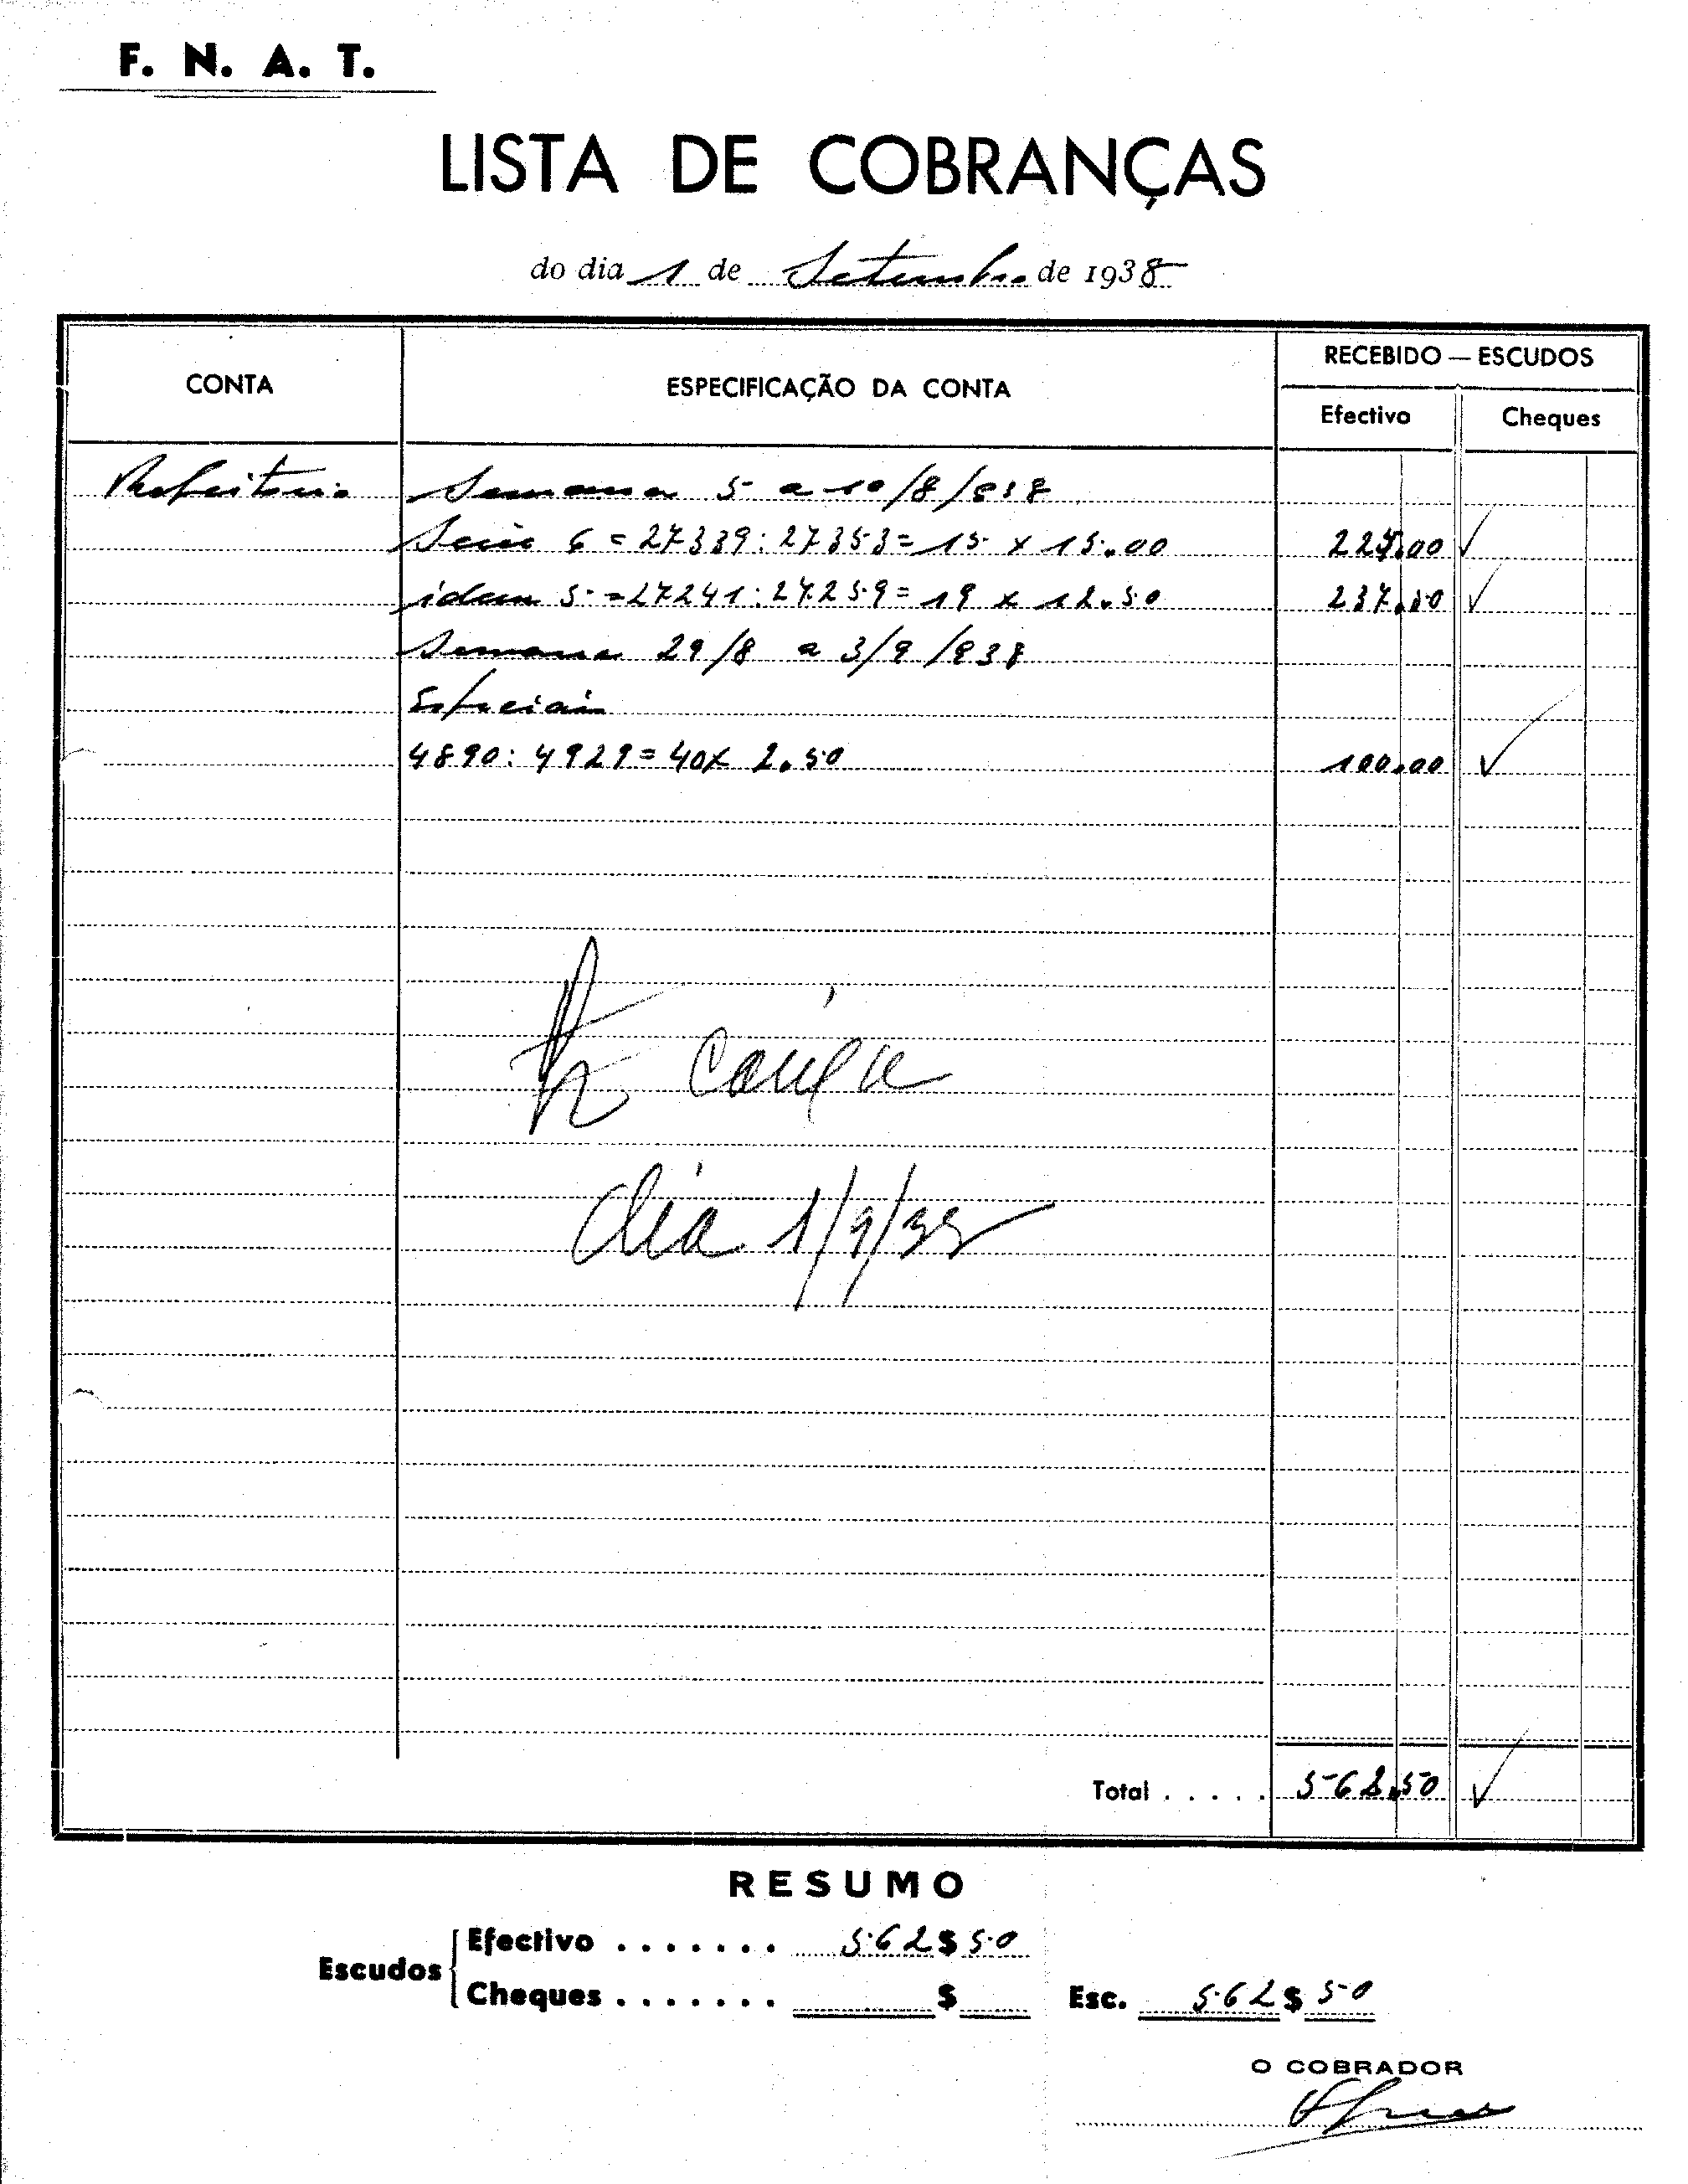 F. N. A. T.
LISTA DE COBRANÇAS
do dia 1 de Setembro de 1938
CONTA
ESPECIFICAÇÃO DA CONTA
RECEBIDO — ESCUDOS
Efectivo
Cheques
Refeitorio Semana 5 a 10/8/938
Serie 6 = 27339 : 27353 = 15 x 15.00 225.00
idem 5 = 27241 : 27259 = 19 x 12.50 237.50
Semana 29/8 a 3/9/938
Especiais
4890 : 4929 = 40 x 2.50 100.00
dia 1/9/38
Total . . . . . 562.50
RESUMO
Escudos
Efectivo . . . . . . . 562$50
Cheques . . . . . . . $
Esc. 562$50
O COBRADOR